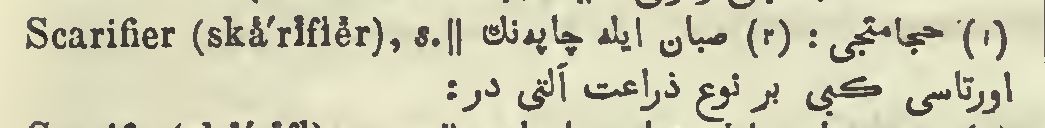 Scarifier (skă′rĭfīĕr), s. || (١) حجامتجی : (٢) صبان ایله چاپه‌نك
اورتاسی كبی بر نوع ذراعت آلتی در :